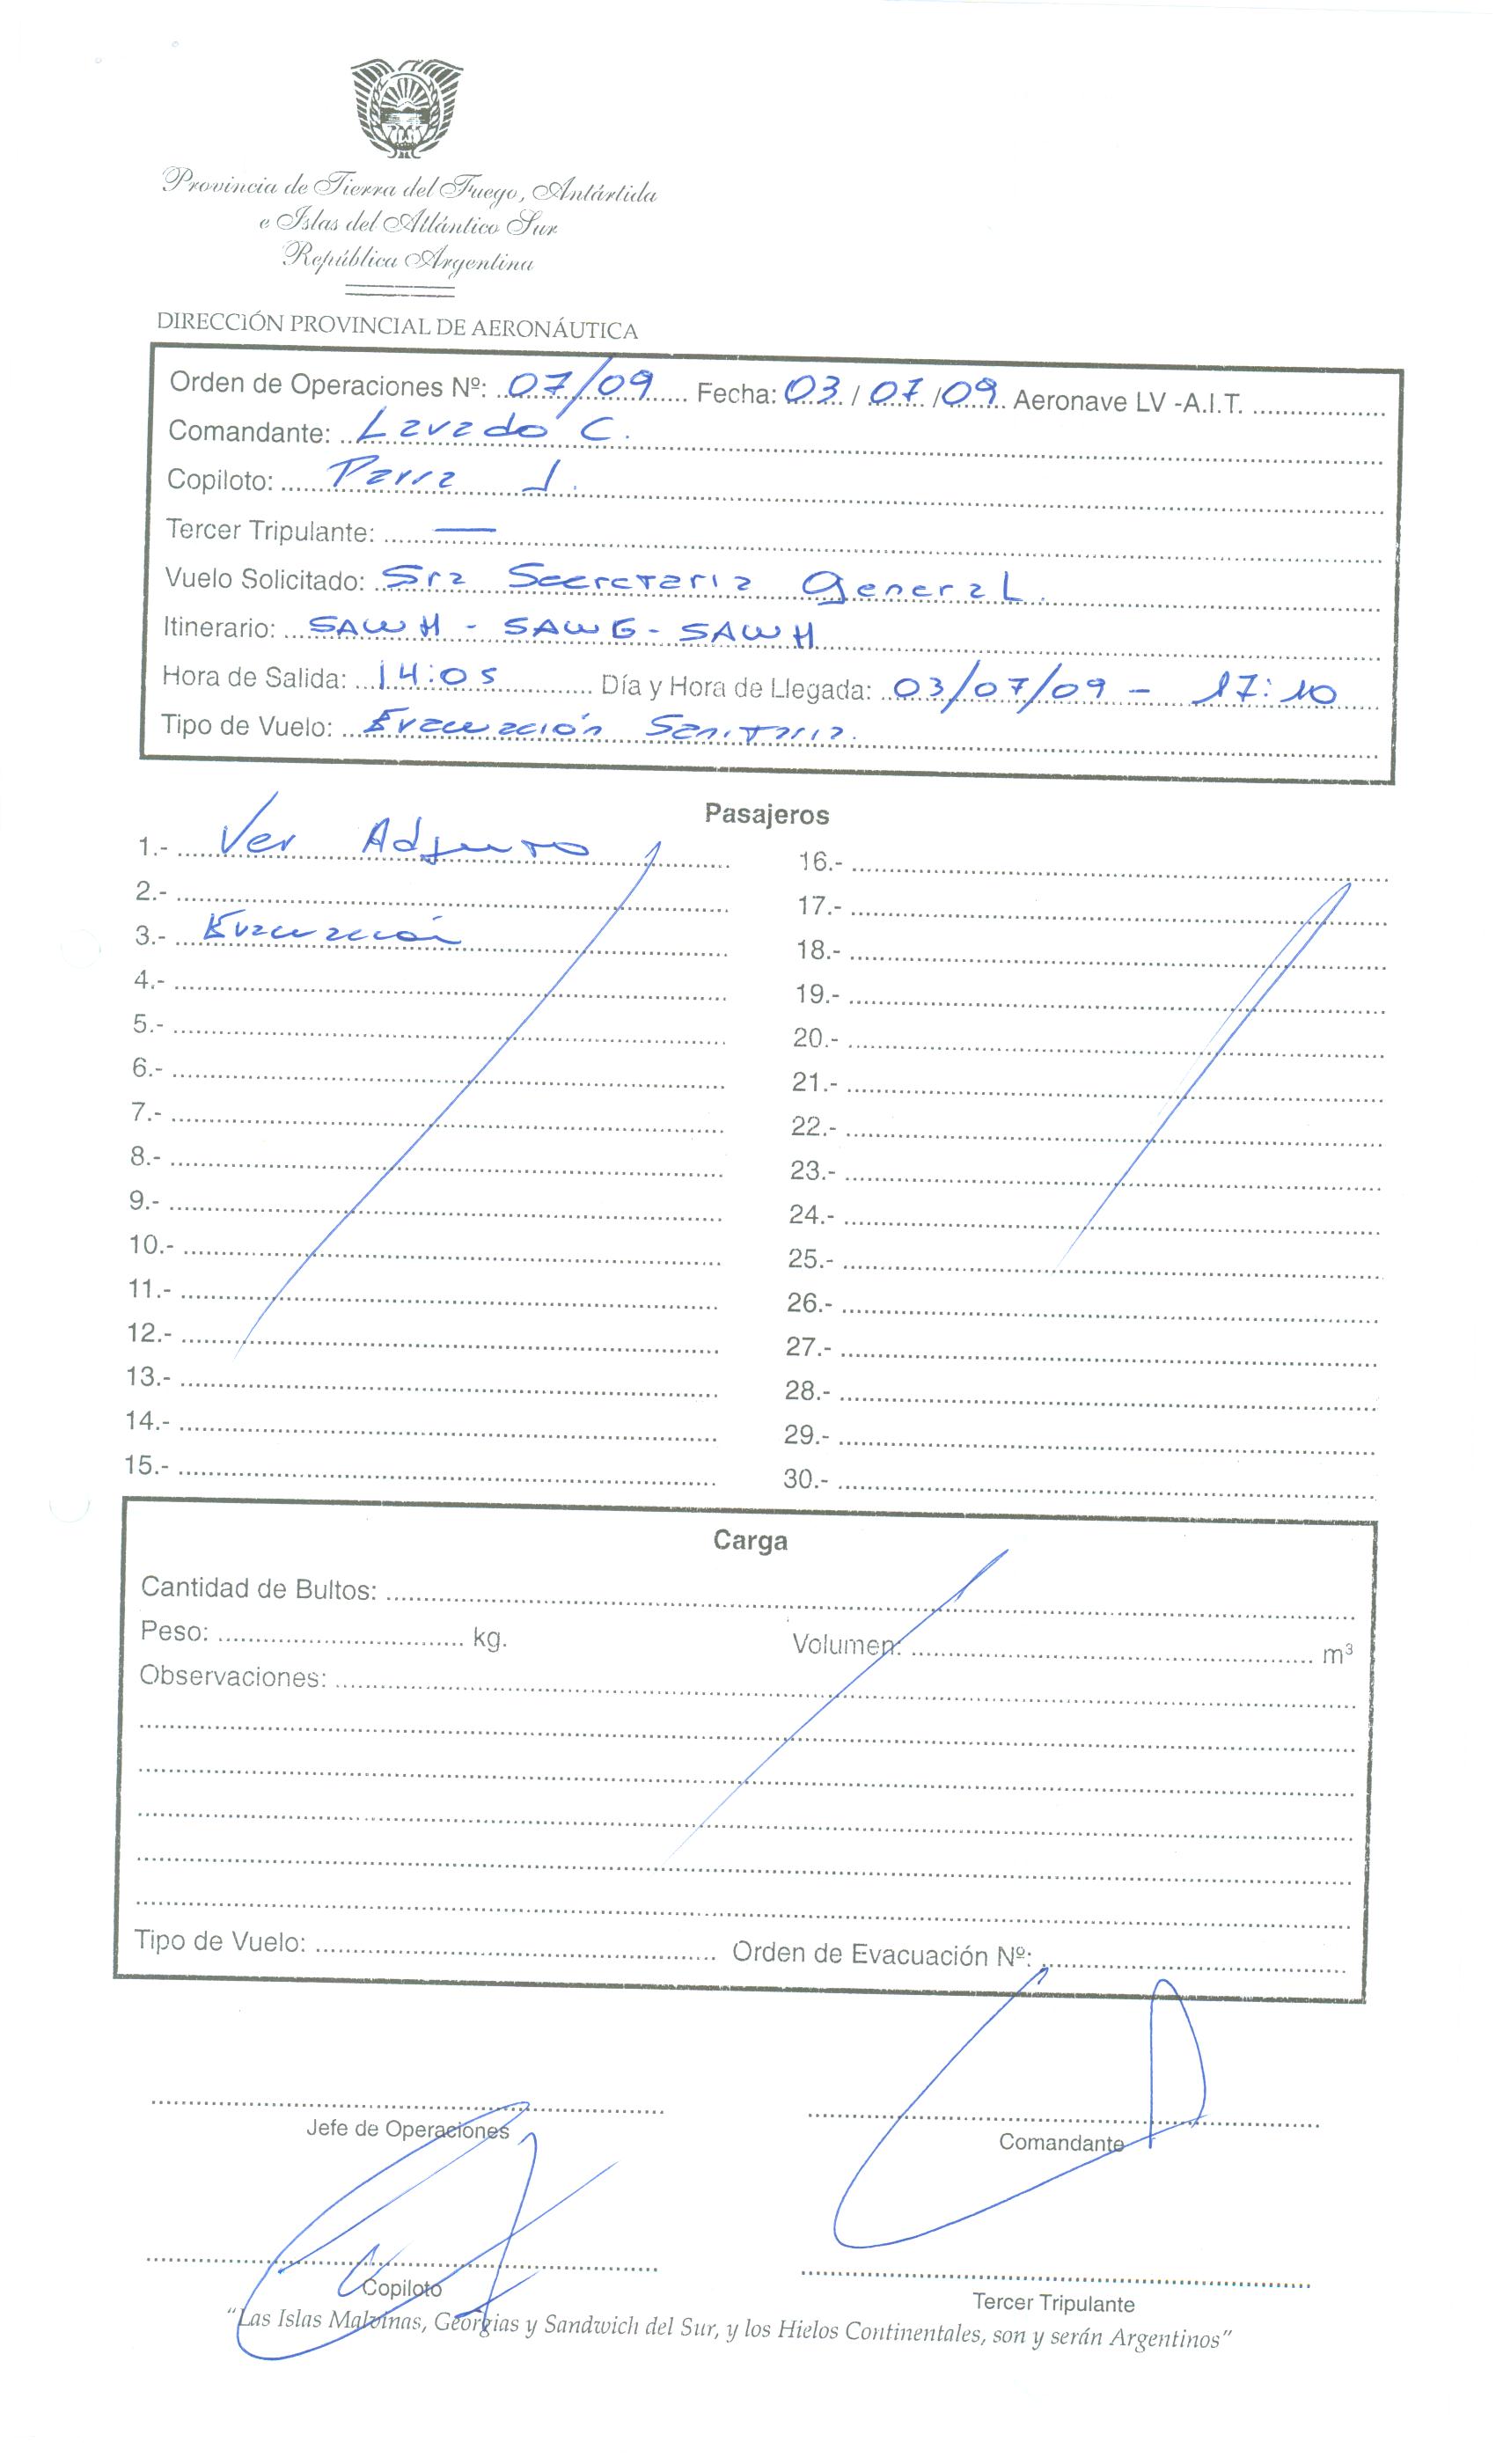 Provincia de Tierra del Fuego, Antártida
e Islas del Atlántico Sur
República Argentina
DIRECCIÓN PROVINCIAL DE AERONÁUTICA
Orden de Operaciones Nº: 07/09 Fecha: 03 / 07 / 09 Aeronave LV -A.I.T.
Comandante: Lavado C.
Copiloto: Parra J.
Tercer Tripulante: —
Vuelo Solicitado: Sra Secretaria General.
Itinerario: SAWH - SAWG - SAWH
Hora de Salida: 14:05 Día y Hora de Llegada: 03/07/09 - 17:10
Tipo de Vuelo: Evacuación Sanitaria.
Pasajeros
1.- Ver Adjunto
2.-
3.- Evacuación
4.-
5.-
6.-
7.-
8.-
9.-
10.-
11.-
12.-
13.-
14.-
15.-
16.-
17.-
18.-
19.-
20.-
21.-
22.-
23.-
24.-
25.-
26.-
27.-
28.-
29.-
30.-
Carga
Cantidad de Bultos:
Peso: kg. Volumen: m³
Observaciones:
Tipo de Vuelo: Orden de Evacuación Nº:
Jefe de Operaciones
Comandante
Copiloto
Tercer Tripulante
“Las Islas Malvinas, Georgias y Sandwich del Sur, y los Hielos Continentales, son y serán Argentinos”